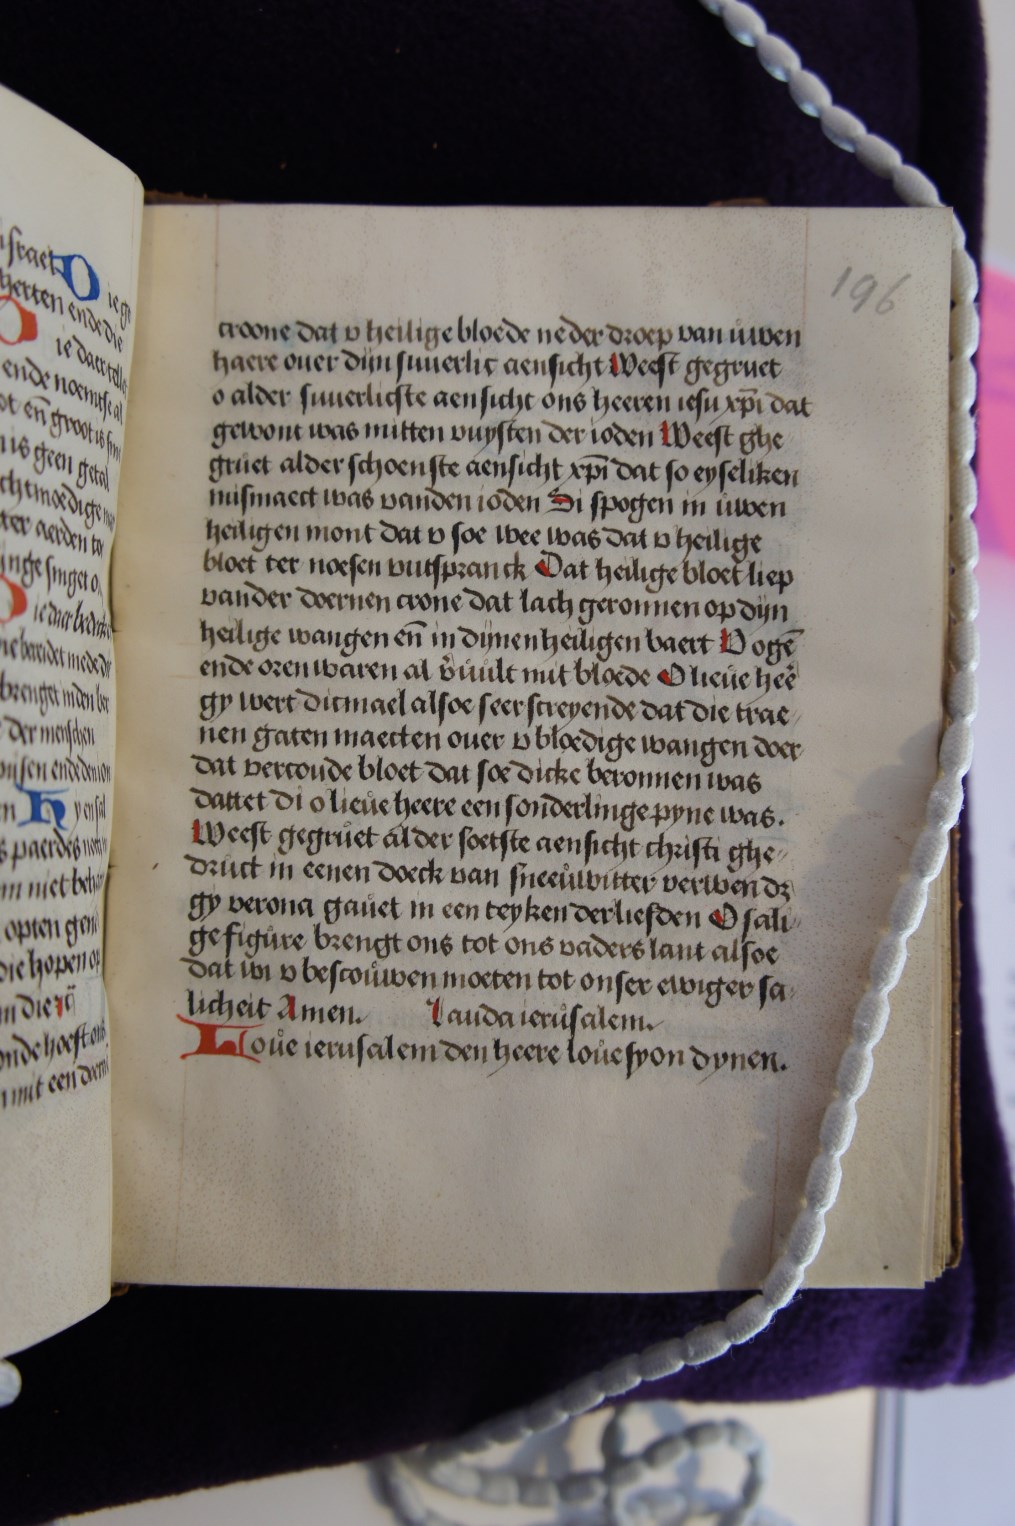 israel Die ge
herten ende die
Die daer telle
ende noemtse al
ot eñ groot is sin
nis geen getal
chtmoedige
ter aerden to
inge singet o
Die daer bedect
die bereidet mede dy
brenget in den ber
der menschen
ende den ion
en Hy en sal
s paerdes
m niet beha
opten gene
die hopen op
in die
onde hoeft
mit een doerni
196
croone dat v heilige bloede neder droep van uwen
haere ouer dijn suuerlic aensicht Weest gegruet
o alder suuerlicste aensicht ons heeren iesu xpi dat
gewont was mitten vuysten der ioden Weest ghe
gruet alder schoenste aensicht xpi dat so eyseliken
mismaect was vanden ioden Si spogen in uwen
heiligen mont dat v soe wee was dat v heilige
bloet ter noesen vutspranck Dat heilige bloet liep
vander doernen crone dat lach geronnen op dijn
heilige wangen eñ in dijnen heiligen baert V ogē
ende oren waren al v̄uult mit bloede O lieue heē
gy wert dicmael alsoe seer screyende dat die trae-
nen gaten maecten ouer v bloedige wangen doer
dat vercoude bloet dat soe dicke beronnen was
dattet di o lieue heere een sonderlinge pyne was.
Weest gegruet alder soetste aensicht christi ghe-
druct in eenen doeck van sneeuwitter verwen dz
gy verona gauet in een teyken der liefden O sali-
ge figure brengt ons tot ons vaders lant alsoe
dat wi v bescouwen moeten tot onser ewiger sa-
licheit Amen. Lauda ierusalem.
Loue ierusalem den heere loue syon dynen.